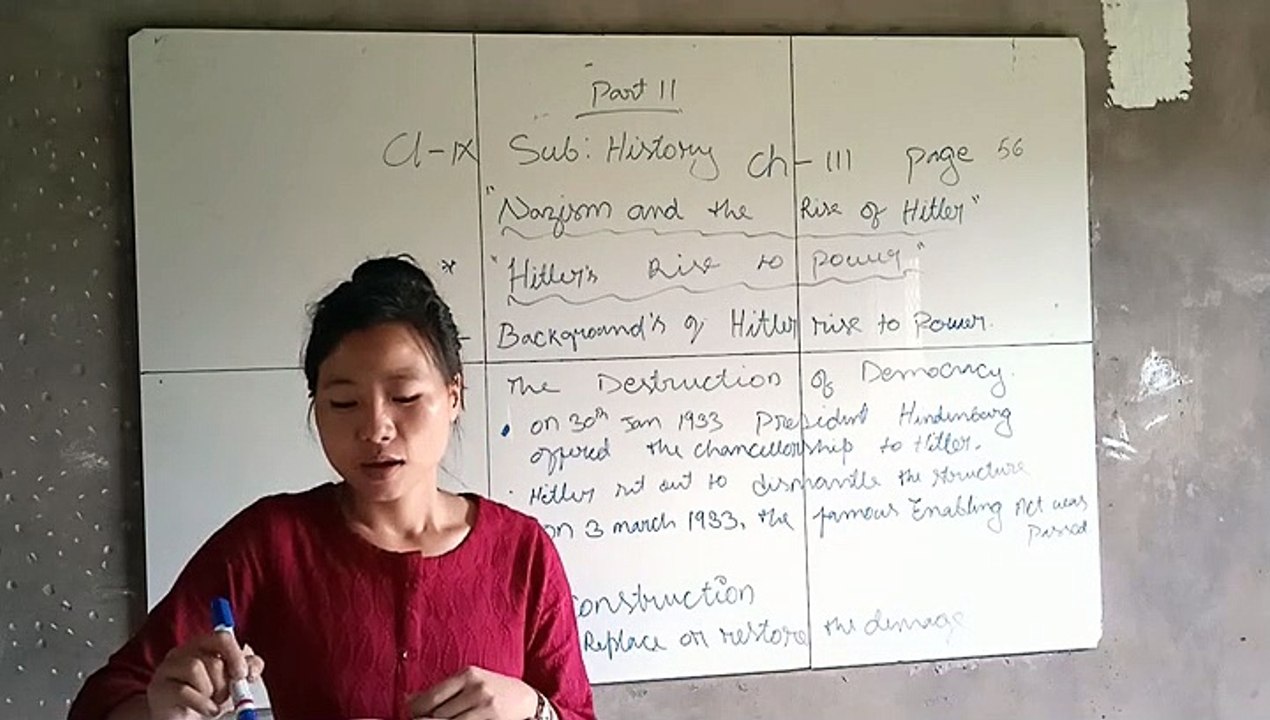 Part II
Cl-IX Sub: History Ch-III Page 56
"Nazism and the Rise of Hitler"
* "Hitler's Rise to Power"
- Background's of Hitler rise to Power.
The Destruction of Democracy.
• on 30th Jan 1933 President Hindenburg
offered the chancellorship to Hitler.
• Hitler set out to dismantle the structure
on 3 march 1933, the famous Enabling Act was
Passed
construction
Replace or restore the damage